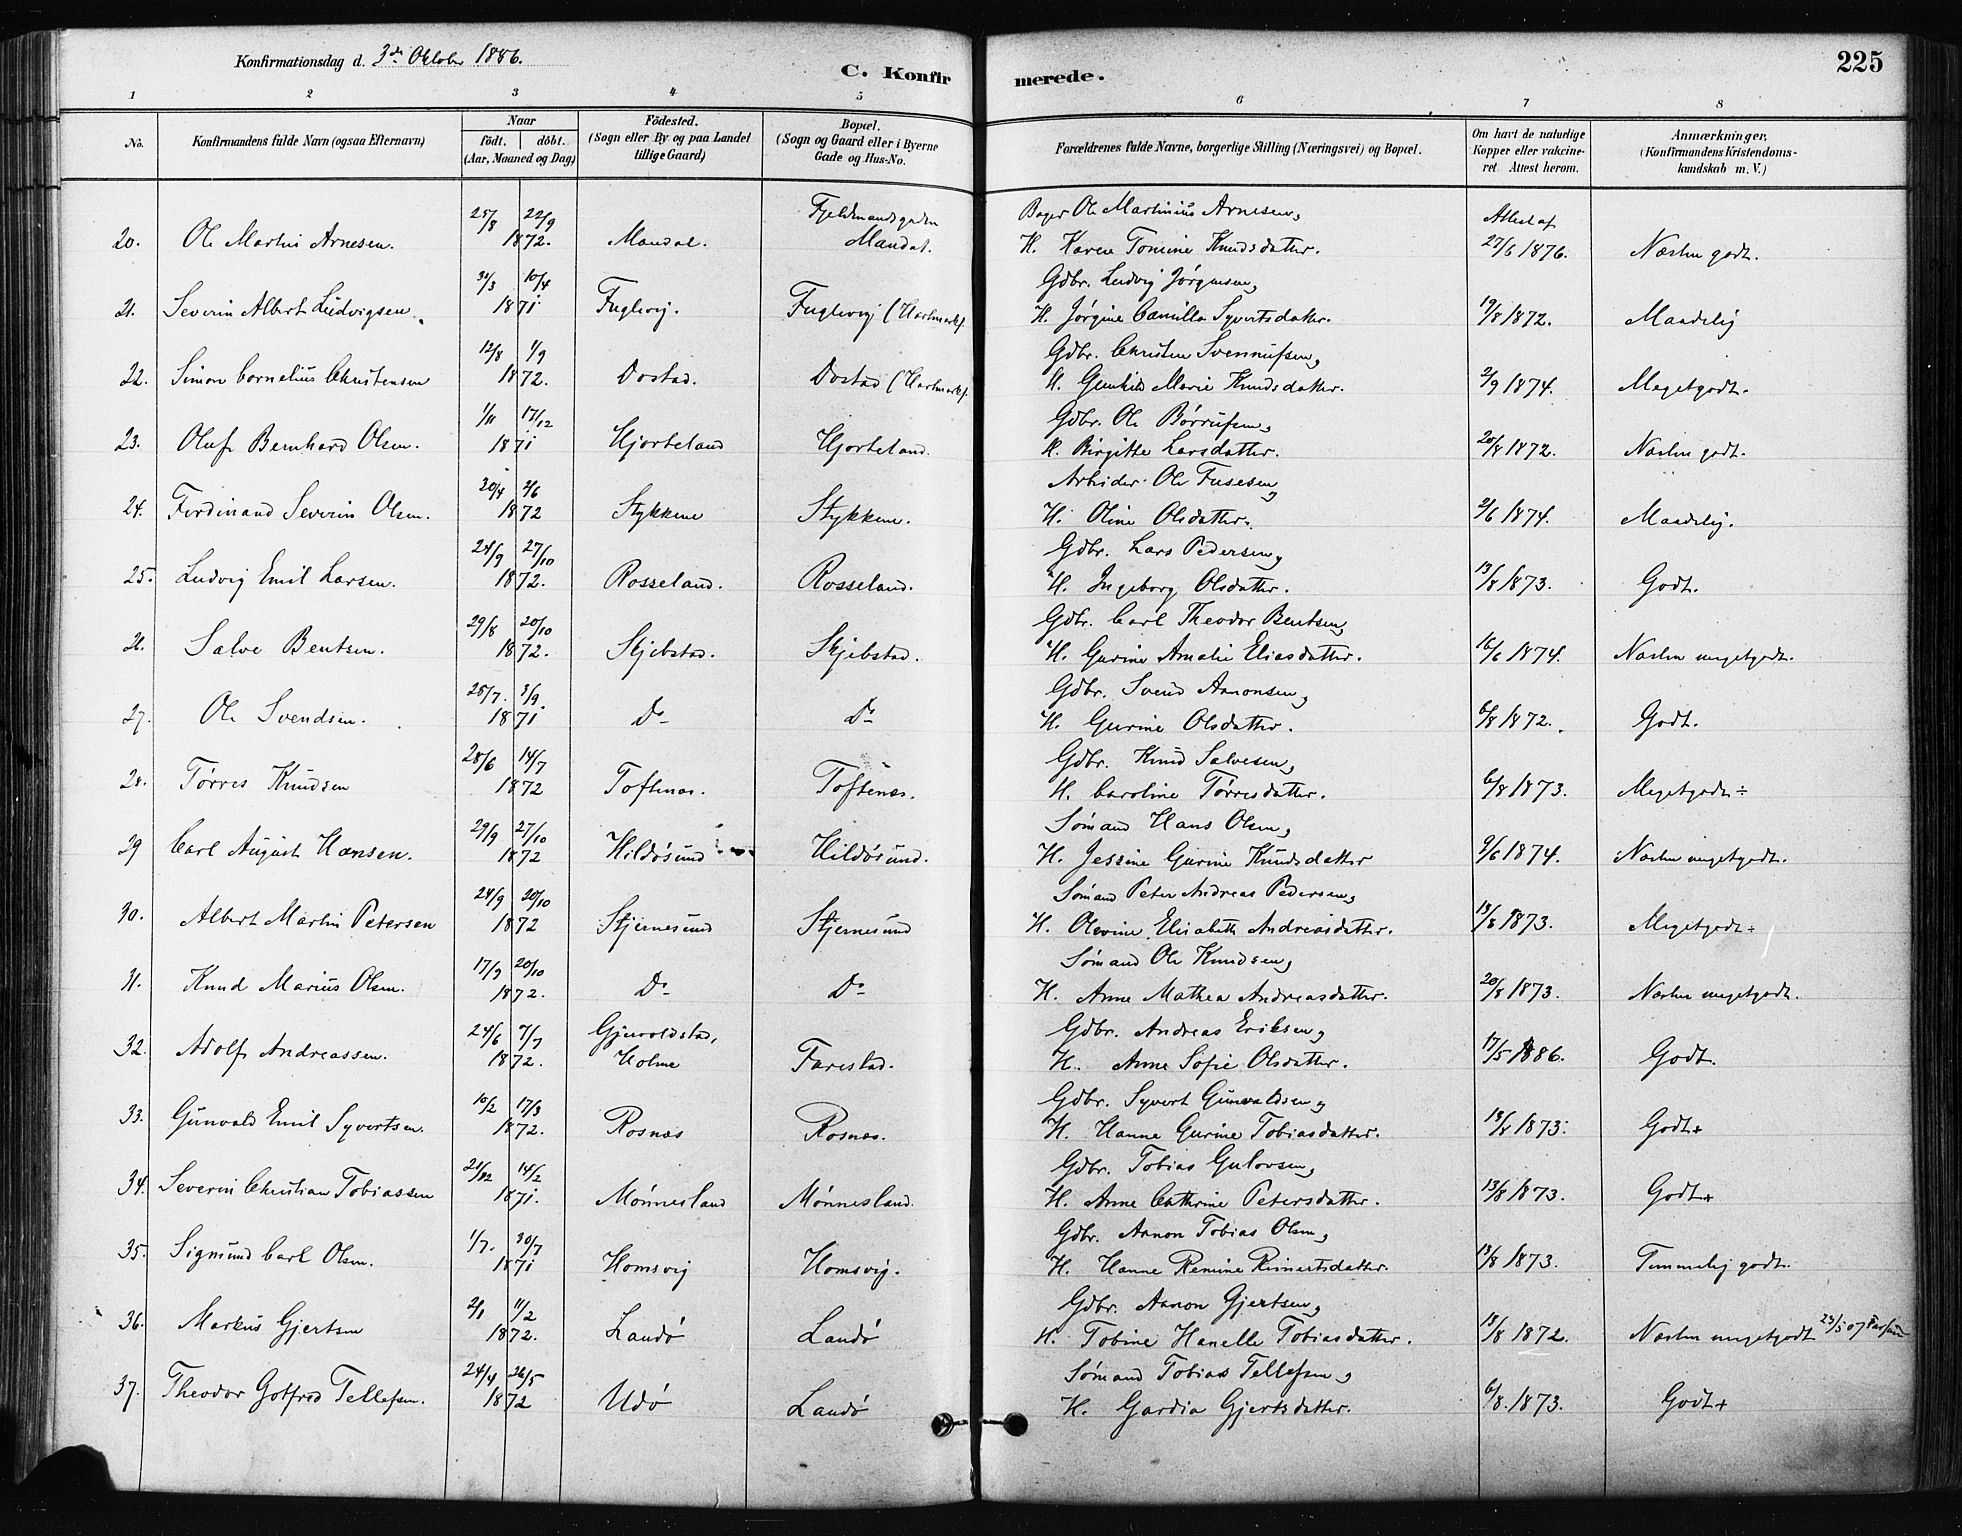 Konfirmationsdag d. 3die Oktober 1886.
C. Konfirmerede.
225
1 2 3 4 5 6 7 8
No. Konfirmandens fulde Navn (ogsaa Efternavn) Naar födt. döbt. (Aar, Maaned og Dag) Födested. (Sogn eller By og paa Landet tillige Gaard) Bopæl. (Sogn og Gaard eller i Byerne Gade og Hus-No. Forældrenes fulde Navne, borgerlige Stilling (Næringsvei) og Bopæl. Om havt de naturlige Kopper eller vakcineret. Attest herom. Anmærkninger, (Konfirmandens Kristendomskundskab m. V.)
25/8 22/9 Bager Ole Martinius Arnesen, Attest af
20. Ole Martin Arnesen. 1872. Mandal. Mandal. H. Karen Tomine Knudsdatter. 27/6 1876. Næsten godt.
31/3 10/4 Gdbr. Ludvig Jørgensen,
21. Severin Albert Ludvigsen. 1871 Fuglevig. Fuglevig (Hartmarks. H. Jørgine Camilla Syvertsdatter. 19/8 1872. Maadelig
12/8 1/9 Gdbr. Christen Svennufsen,
22. Simon Cornelius Christensen 1872. Dostad. Dostad (Hartmarks. H. Gunhild Marie Knudsdatter. 2/9 1874. Megetgodt.
1/11 17/12 Gdbr. Ole Børrufsen,
23. Oluf Bernhard Olsen. 1871 Hjorteland Hjorteland. H. Birgitte Larsdatter. 20/8 1872. Næsten godt.
20/4 2/6 Arbeider Ole Fusesen,
24. Ferdinand Severin Olsen. 1872 Stykkene Stykkene. H. Oline Olsdatter. 2/6 1874. Maadelig.
24/9 27/10 Gdbr. Lars Pedersen,
25. Ludvig Emil Larsen. 1872. Rosseland. Rosseland. H. Ingeborg Olsdatter. 13/8 1873. Godt.
29/8 20/10 Gdbr. Carl Theodor Bentsen,
26. Salve Bentsen. 1872. Skjebstad. Skjebstad. H. Gurine Amalie Eliasdatter. 16/6 1874. Næsten megetgodt.
25/7. 3/9. Gdbr. Svend Aanonsen,
27. Ole Svendsen. 1871 Do Do H. Gurine Olsdatter. 6/8 1872. Godt.
28/6 14/7 Gdbr. Knud Salvesen,
28. Tørres Knudsen 1872 Toftenæs. Toftenæs. H. Caroline Tørresdatter. 6/8 1873. Megetgodt ÷
29/9 27/10 Sømand Hans Olsen,
29 Carl August Hansen. 1872 Hildøsund Hildøsund. H. Jessine Gurine Knudsdatter 9/6 1874. Næsten megetgodt.
24/9 20/10 Sømand Peter Andreas Pedersen,
30. Albert Martin Petersen 1872 Stjernesund Stjernesund H. Olevine Elisabeth Andreasdatter. 13/8 1873. Megetgodt ÷
17/9 20/10 Sømand Ole Knudsen,
31. Knud Marius Olsen. 1872. Do Do H. Anne Mathea Andreasdatter. 20/8 1873. Næsten megetgodt.
24/6 7/7 Gjervoldstad, Gdbr. Andreas Eriksen,
32. Adolf Andreassen. 1872. Holme Farestad. H. Anne Sofie Olsdatter. 17/5 1886. Godt.
10/2 17/3 Gdbr. Syvert Gunvaldsen,
33. Gunvald Emil Syvertsen. 1872. Rosnæs Rosnæs. H. Hanne Gurine Tobiasdatter. 13/8 1873. Godt +
21/12 14/2 Gdbr. Tobias Gulovsen,
34. Severin Christian Tobiassen 1871. Mønnesland Mønnesland. H. Anne Cathrine Petersdatter. 13/8 1873. Godt +
1/7. 30/7 Gdbr. Aanon Tobias Olsen,
35. Sigmund Carl Olsen. 1871 Homsvig Homsvig. H. Hanne Remine Reinertsdatter. 13/8 1873. Temmelig godt.
2/1 11/2 Gdbr. Aanon Gjertsen,
36. Markus Gjertsen 1872. Landø Landø H. Tobine Hanelle Tobiasdatter. 18/8 1872. Næsten megetgodt 23/5 07
24/4 26/5 Sømand Tobias Tellefsen,
37. Theodor Gotfred Tellefsen. 1872 Udø Landø H. Gardia Gjertsdatter. 6/8. 1873. Godt +